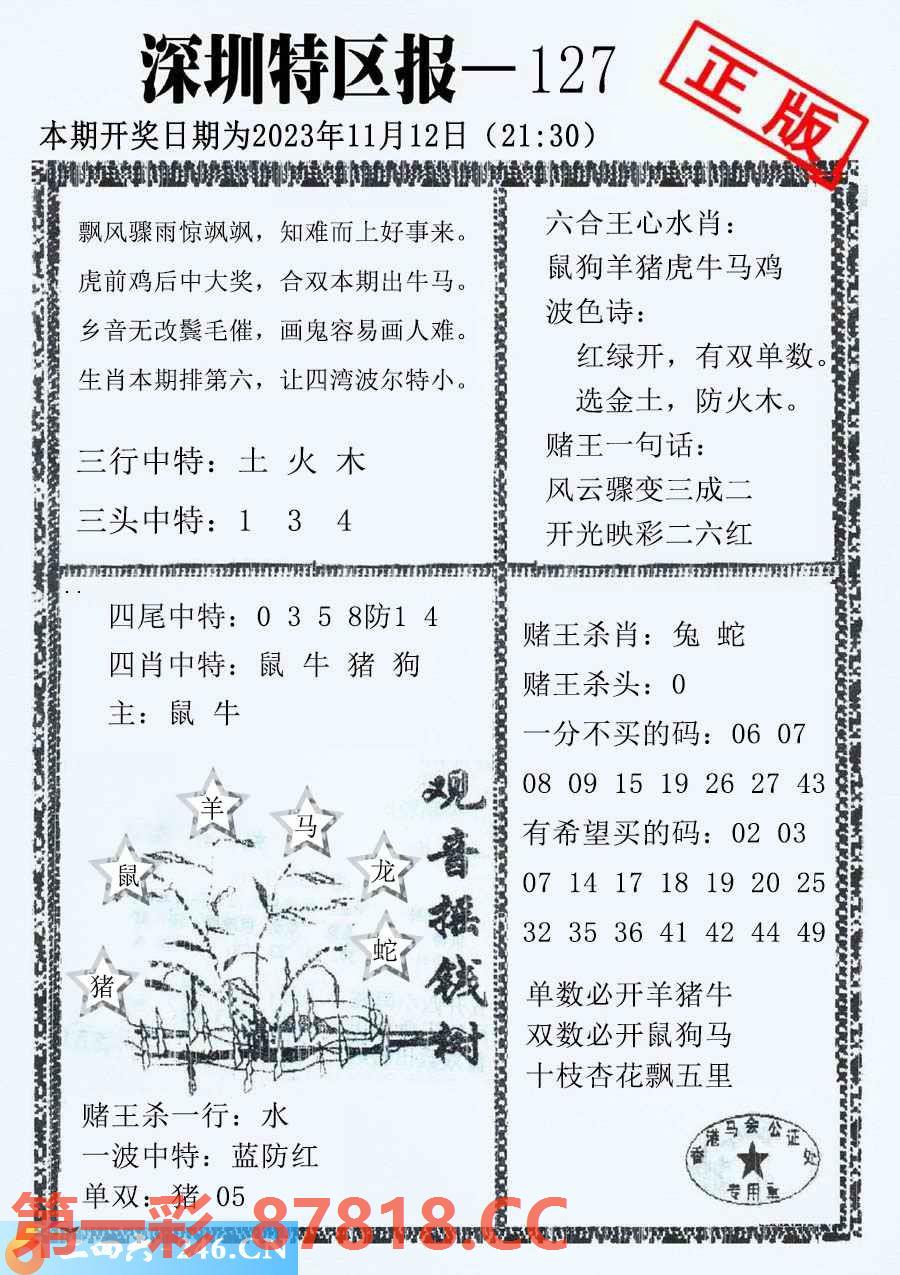 深圳特区报—127
正版
本期开奖日期为2023年11月12日（21:30）
飘风骤雨惊飒飒，知难而上好事来。
虎前鸡后中大奖，合双本期出牛马。
乡音无改鬓毛催，画鬼容易画人难。
生肖本期排第六，让四湾波尔特小。
三行中特：土 火 木
三头中特：1 3 4
六合王心水肖：
鼠狗羊猪虎牛马鸡
波色诗：
红绿开，有双单数。
选金土，防火木。
赌王一句话：
风云骤变三成二
开光映彩二六红
四尾中特：0 3 5 8防1 4
四肖中特：鼠 牛 猪 狗
主：鼠 牛
羊
马
鼠
龙
蛇
猪
观音摇钱树
赌王杀一行：水
一波中特：蓝防红
单双：猪 05
赌王杀肖：兔 蛇
赌王杀头：0
一分不买的码：06 07
08 09 15 19 26 27 43
有希望买的码：02 03
07 14 17 18 19 20 25
32 35 36 41 42 44 49
单数必开羊猪牛
双数必开鼠狗马
十枝杏花飘五里
香港马会公证处
专用章
第一彩 87818.CC
246.CN